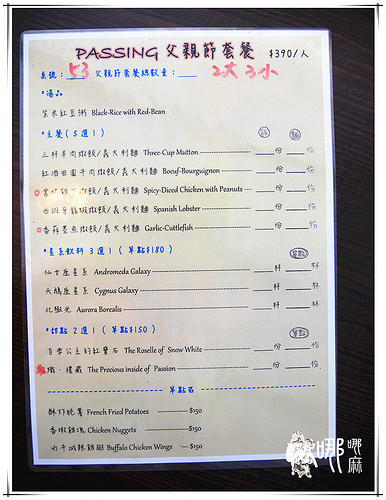 PASSING 父親節套餐 $390/人
桌號: 53 父親節套餐總數量: 2大 3小
*湯品
紫米紅豆粥 Black-Rice with Red-Bean
*主餐(5選1)
三杯羊肉燉飯/義大利麵 Three-Cup Mutton 份 份
紅酒田園牛肉燉飯/義大利麵 Boeuf-Bourguignon 份 份
宮保雞丁燉飯/義大利麵 Spicy-Diced Chicken with Peanuts 份 份
西班牙龍蝦燉飯/義大利麵 Spanish Lobster 份 份
香蒜墨魚燉飯/義大利麵 Garlic-Cuttlefish 份 份
*星系飲料 3選1 (單點$180) 單點
仙女座星系 Andromeda Galaxy 杯 杯
天鵝座星系 Cygnus Galaxy 杯 杯
北極光 Aurora Borealis 杯 杯
*甜點 2選1 (單點$150) 單點
白雪公主的紅寶石 The Roselle of Snow White 份 份
The Precious inside of Passion 份
單點區
酥炸脆薯 French Fried Potatoes $150
香嫩雞塊 Chicken Nuggets $150
水牛城辣雞翅 Buffalo Chicken Wings $150
哪哪麻